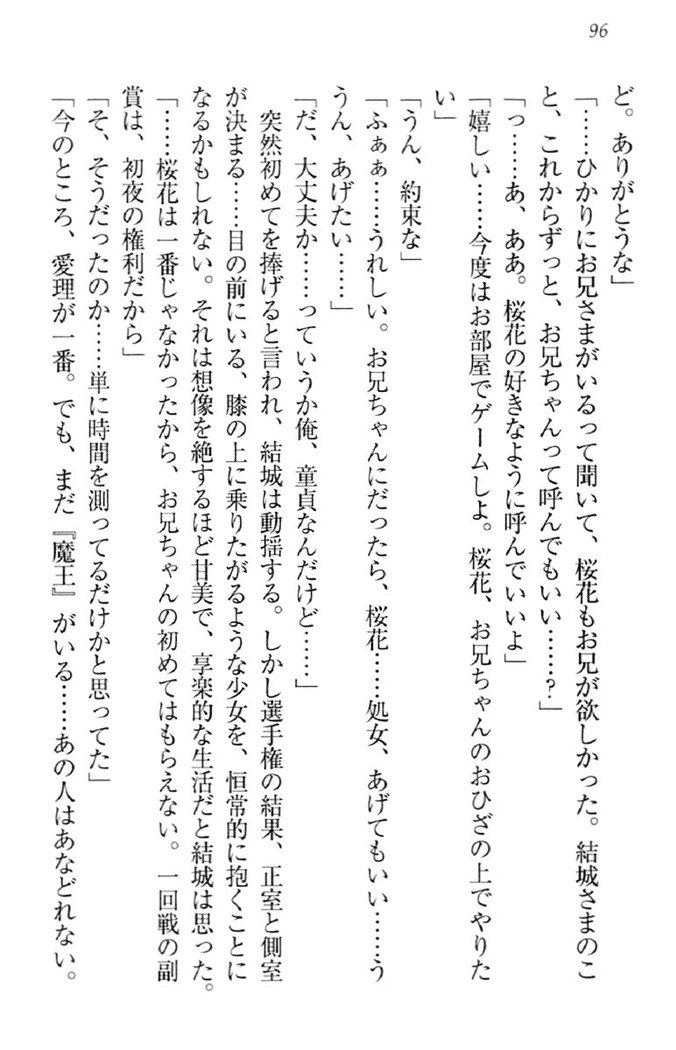 96
ど。ありがとうな」
「……ひかりにお兄さまがいるって聞いて、桜花もお兄が欲しかった。結城さまのこ
と、これからずっと、お兄ちゃんって呼んでもいい……？」
「っ……あ、ああ。桜花の好きなように呼んでいいよ」
「嬉しい……今度はお部屋でゲームしよ。桜花、お兄ちゃんのおひざの上でやりた
い」
「うん、約束な」
「ふぁぁ……うれしい。お兄ちゃんにだったら、桜花……処女、あげてもいい……う
うん、あげたい……」
「だ、大丈夫か……っていうか俺、童貞なんだけど……」
突然初めてを捧げると言われ、結城は動揺する。しかし選手権の結果、正室と側室
が決まる……目の前にいる、膝の上に乗りたがるような少女を、恒常的に抱くことに
なるかもしれない。それは想像を絶するほど甘美で、享楽的な生活だと結城は思った。
「……桜花は一番じゃなかったから、お兄ちゃんの初めてはもらえない。一回戦の副
賞は、初夜の権利だから」
「そ、そうだったのか……単に時間を測ってるだけかと思ってた」
「今のところ、愛理が一番。でも、まだ『魔王』がいる……あの人はあなどれない。